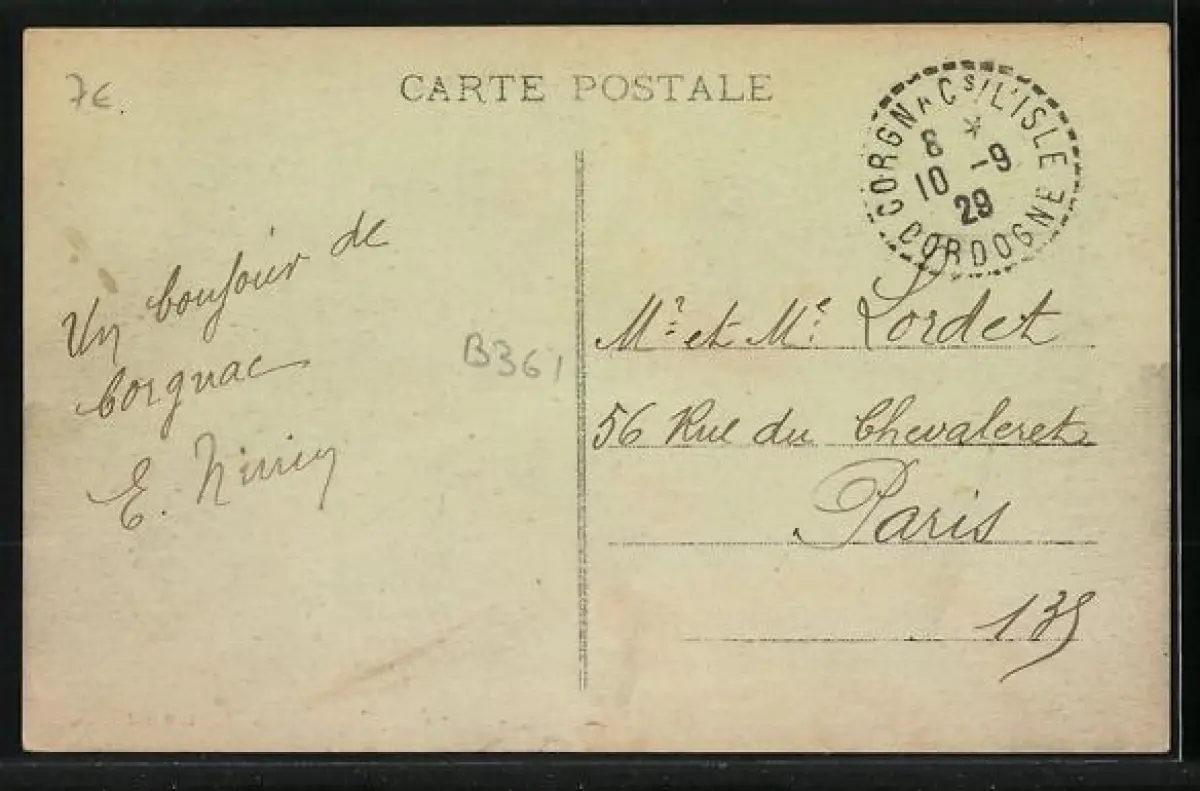 7€.
CARTE POSTALE
CORGNAC S/L'ISLE
*
8
10 -9
29
DORDOGNE
Un bonjour de
Corgnac
E.
B361
Mr et Me Lordet
56 Rue du Chevaleret
Paris